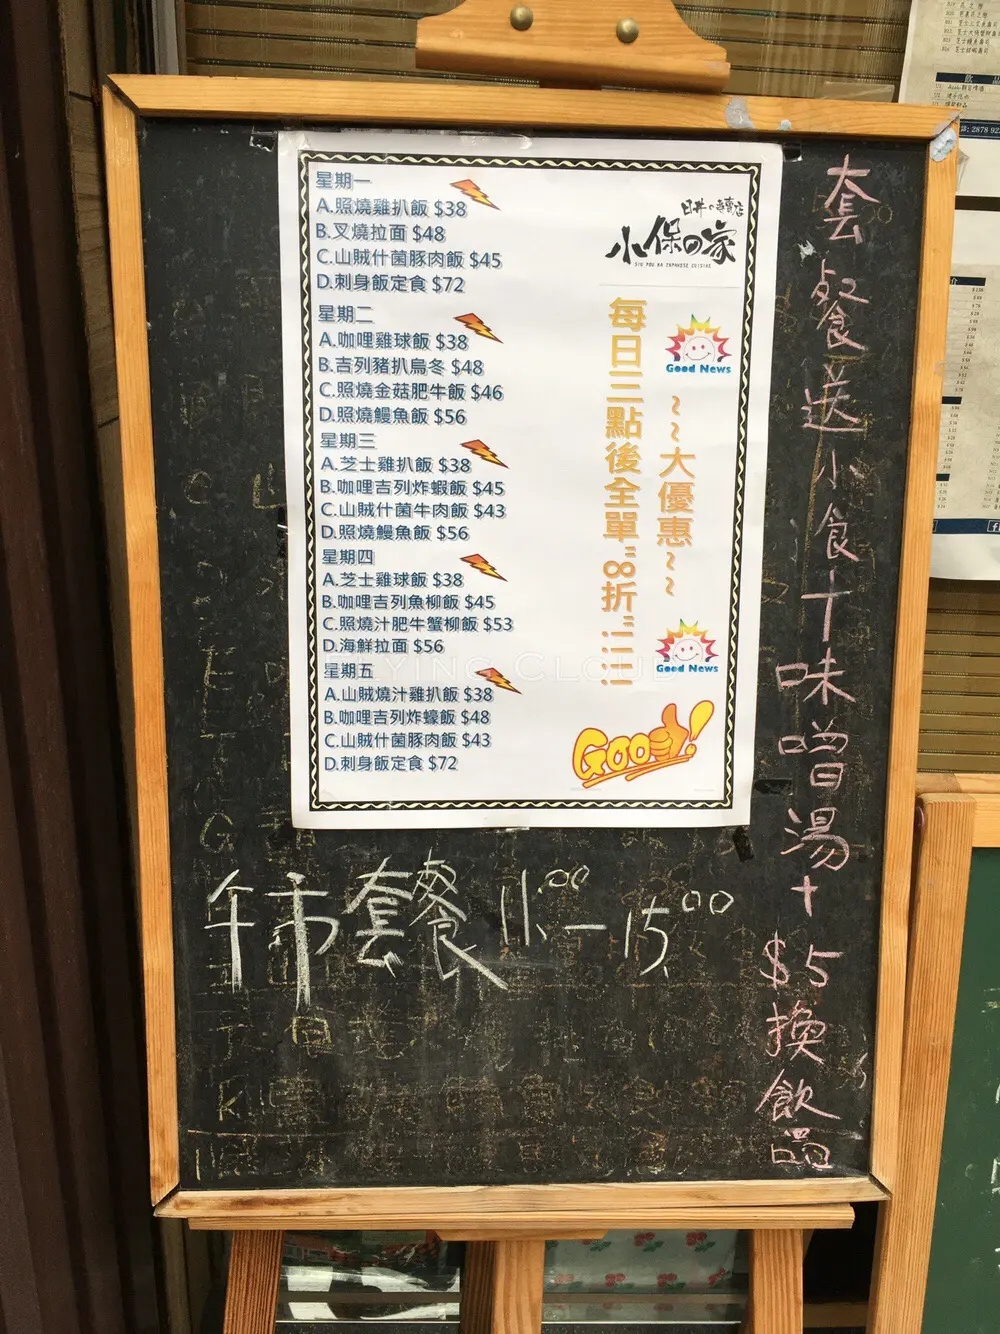 星期一
A.照燒雞扒飯 $38
B.叉燒拉面 $48
C.山賊什菌豚肉飯 $45
D.刺身飯定食 $72
星期二
A.咖哩雞球飯 $38
B.吉列豬扒烏冬 $48
C.照燒金菇肥牛飯 $46
D.照燒鰻魚飯 $56
星期三
A.芝士雞扒飯 $38
B.咖哩吉列炸蝦飯 $45
C.山賊什菌牛肉飯 $43
D.照燒鰻魚飯 $56
星期四
A.芝士雞球飯 $38
B.咖哩吉列魚柳飯 $45
C.照燒汁肥牛蟹柳飯 $53
D.海鮮拉面 $56
星期五
A.山賊燒汁雞扒飯 $38
B.咖哩吉列炸蠔飯 $48
C.山賊什菌豚肉飯 $43
D.刺身飯定食 $72
小保の家
SIU POU KA JAPANESE CUISINE
每日三點後全單"8折"!!!
~~大優惠~~
Good News
Good News
Good!
FLYING CLOUD
午市套餐 11:00-15:00
套餐送小食+味噌湯+$5換飲品